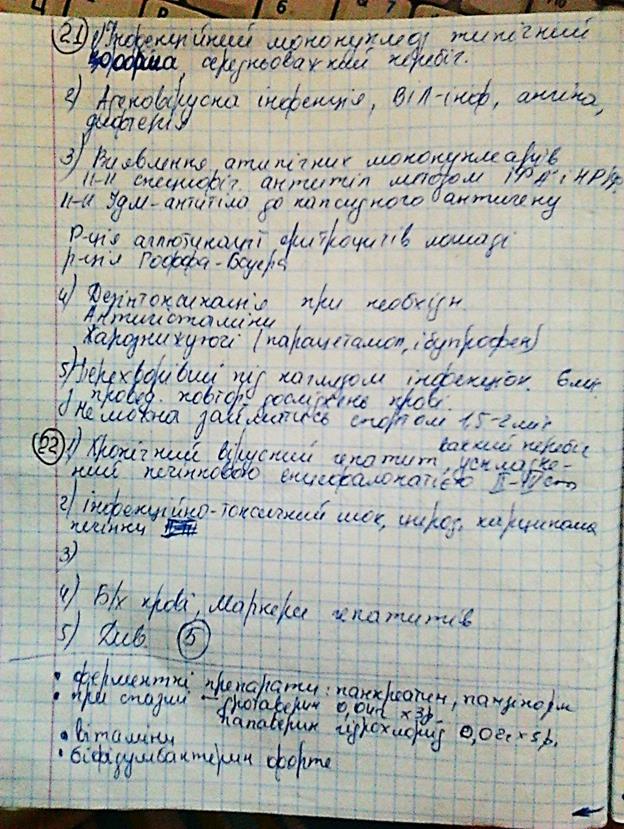 21 1) Інфекційний мononуклеоз типічний
форма, середньоважкий перебіг.
2) Аденовірусна інфекція, ВІЛ-інф, ангіна,
дифтерія
3) Виявлення атипічних мононуклеарів
II-II специфіч. антитіл методом ІФА і НРІФ
II-II IgM-антитіла до капсидного антигену
Р-ція аглютинації еритроцитів лошаді
р-ція Гоффа-Бауера
4) Дезінтоксикація при необхідн.
Антигістаміни
Жарознижуючі (парацетамол, ібупрофен)
5) Перехворівший під наглядом інфекціон. 6 міс
з провед. повтор досліджень крові.
Не можна займатись спортом 1,5-2 міс
22 1) Хронічний вірусний гепатит, важкий перебіг
ускладнений печінковою енцефалопатією II-IV ст
2) інфекційно-токсичний шок, цироз, карцинома
печінки
3)
4) Б/х крові, Маркери гепатитів
5) Див. 5
• ферментні препарати: панкреатин, панзінорм
• при спазмі - дротаверин 0,04г х 3р.
папаверин гідрохлорид 0,02г х 3р.
• вітаміни
• біфідумбактерин форте